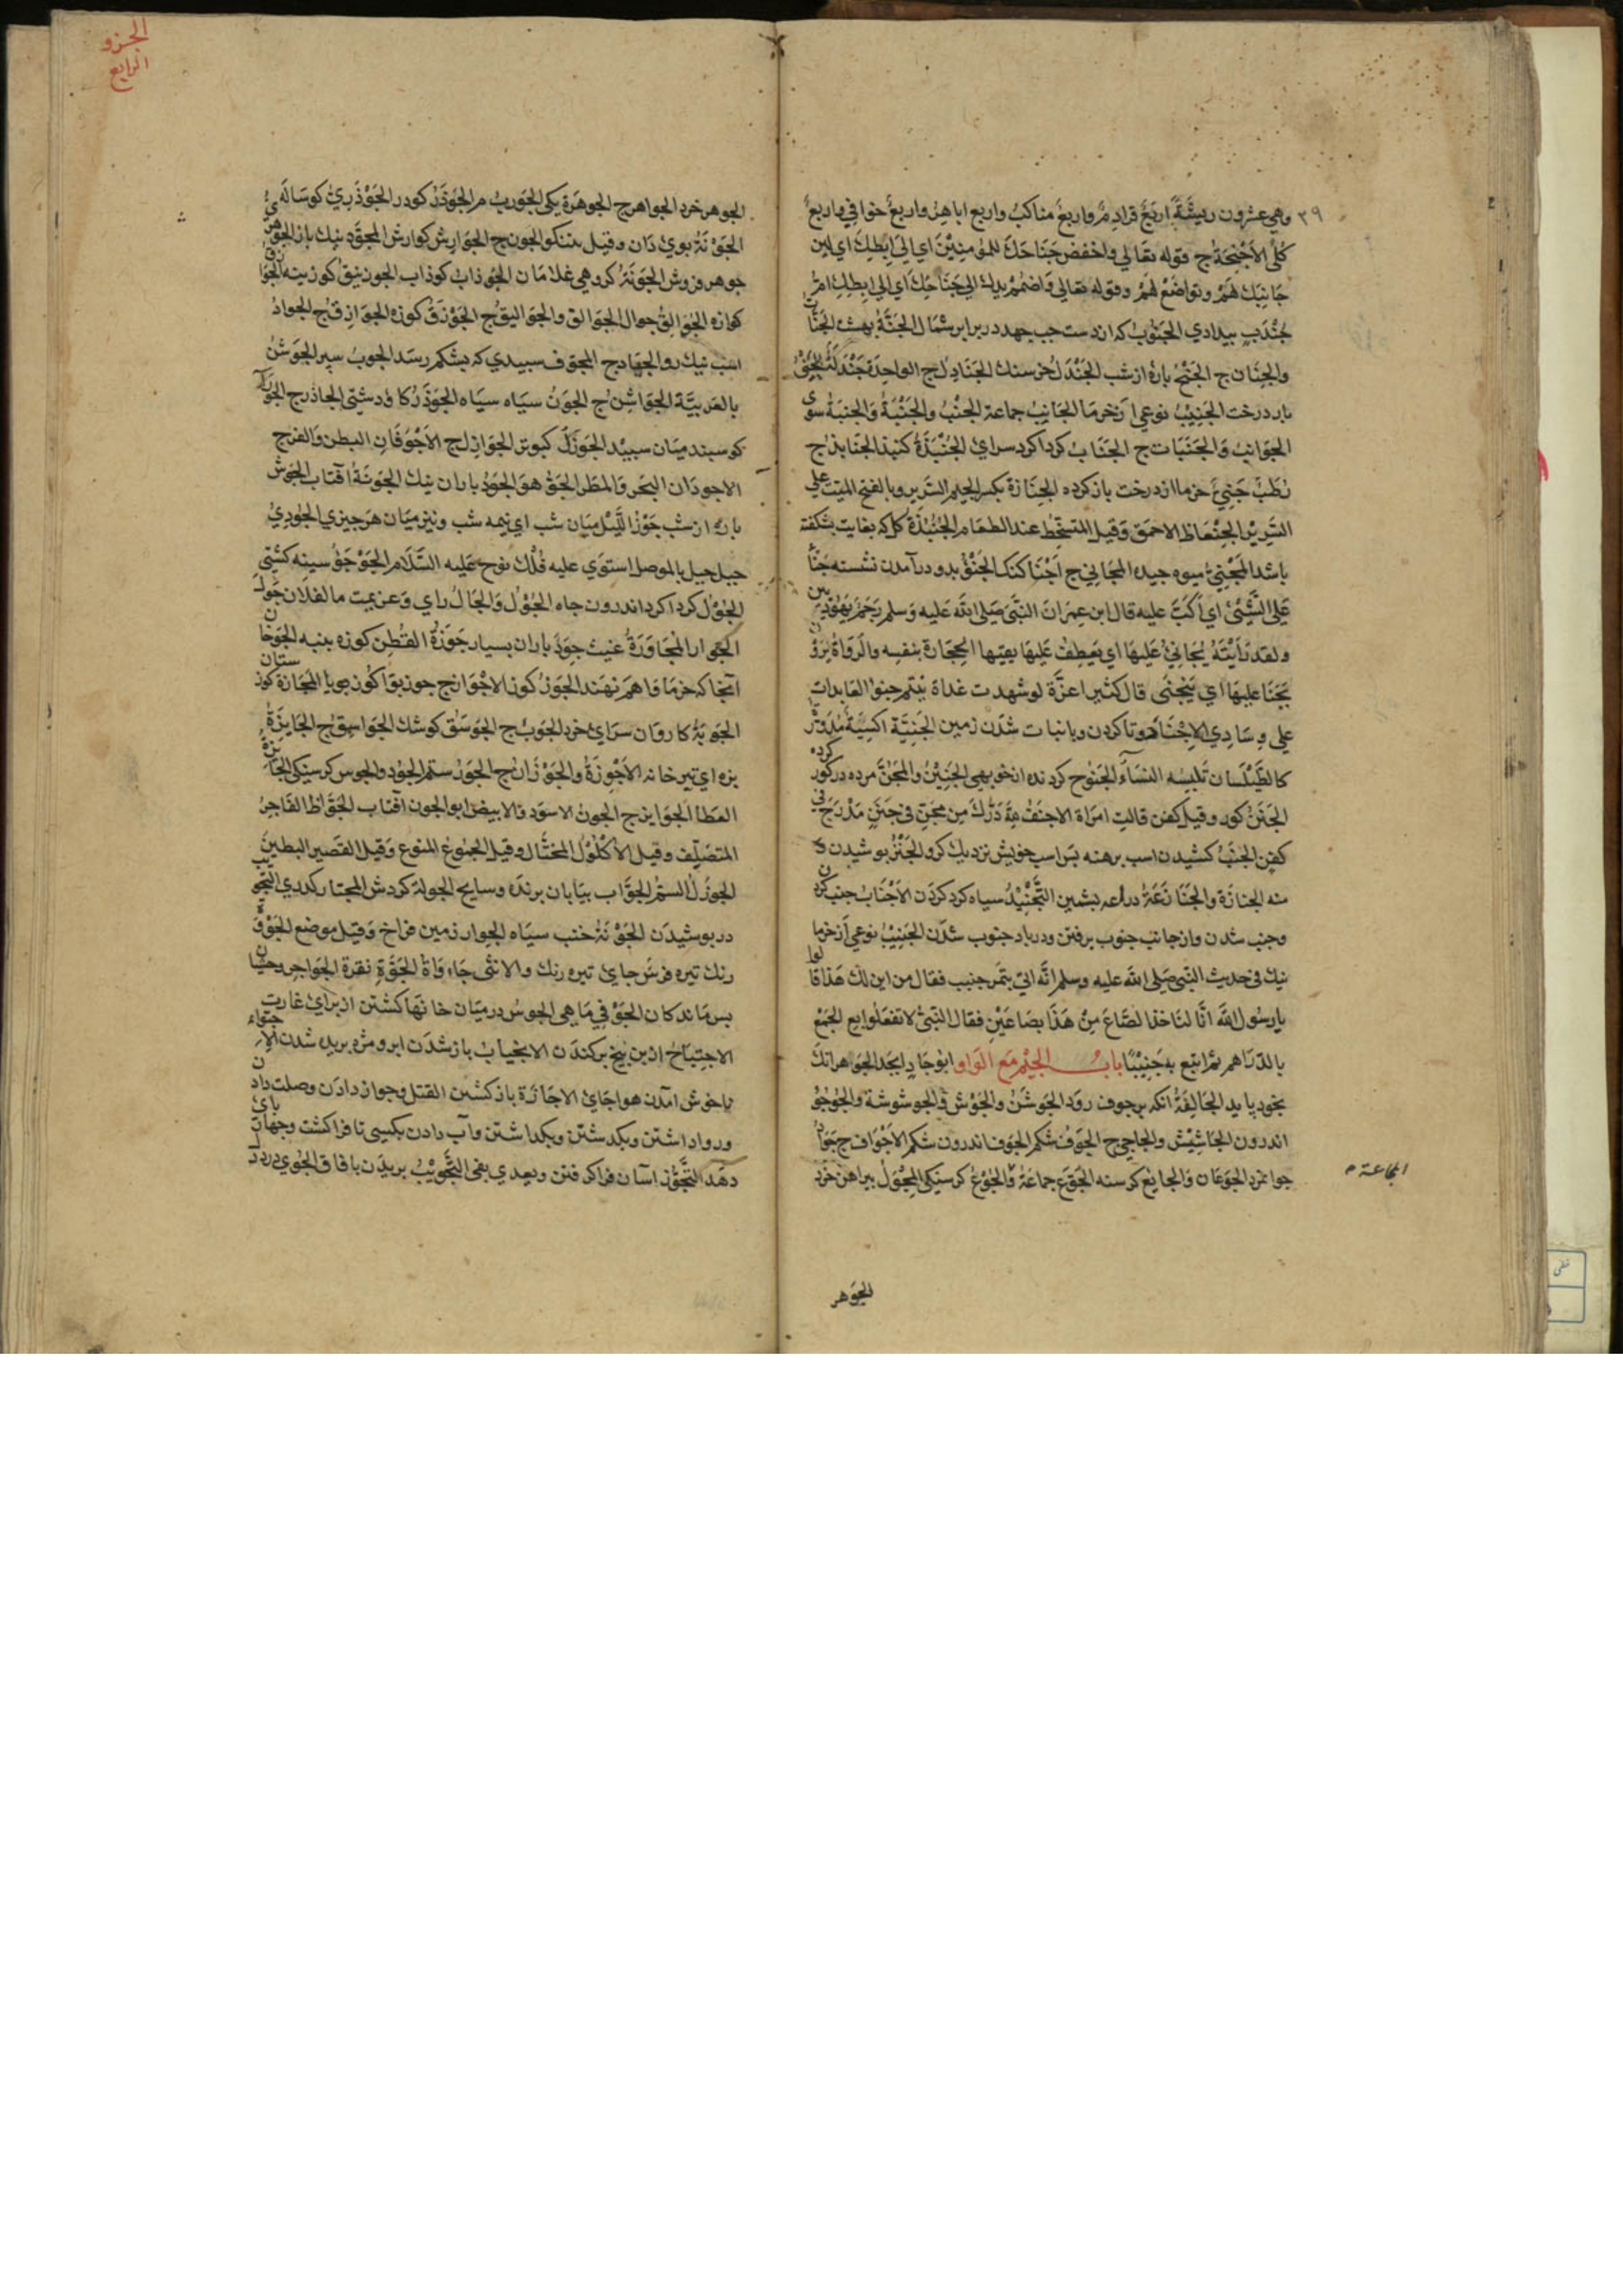 ٣٩
وهي عشرون ريشة اربع قوادم واربع مناكب واربع اباهر واربع خوافي واربع
كلى الاجنحة ج قوله تعالي واخفض جناحك للمؤمنين اي الي ابطك اي لين
جانبك لهم وتواضع لهم وقوله تعالي واضمم يدك الي جناحك اي الي ابطك ام
جندب بيدادي الجنوب كه از دست جب جهد در برابر شمال الجنة بهشت الجنات
والجنان ج الجنح باره از شب الجندل خرسنك الجنادل ج الواحدة جندلة الجني
بار درخت الجنيب نوعي از خرما الجانب جماعة الجنب والجنبة والجنبة سوى
الجوانب والجنبات ج الجناب كردا كرد سراي الجنبذة كنبد الجنابذ ج
رطب جني خرما از درخت باز كرده الجنازة بكسر الجيم السرير وبالفتح الميت على
السرير الجنعاظ الاحمق وقيل المتسخط عند الطعام الجنبذة كل كه بغايت بشكفته
باشد المجني ميوه جيده المجاني ج اجنا كنك الجنو بدو در آمدن نشسته جنأ
على الشئ اي اكب عليه قال ابن عمران النبي صلى الله عليه وسلم رجم يهوديين
ولقد رأيته يجاني عليها اي يعطف عليها يقيها الحجارة بنفسه والرواة يروون
يجنا عليها اي ينحني قال كثير اعزة لو شهدت غداة بنتم جنوا العابدات
علي وسادي الاجتنا دوتا كردن وبا نبات شدن زمين الجنية اكسية مدورة
كالطيلسان تلبسه النساء الجنوح كردنده از خوبهي الجنين والمجن مرده در كور كرده
الجنن كور وقيل كفن قالت امراة الاحنف لله درك من مجن في جنن مدرج في
كفن الجنب كشيدن اسب برهنه بر اسب خويش نزديك كرو الجنز بوشيدن و
منه الجنازة والجنا نزعة دراعه بشمين التجنيد سياه كرد كردن الاجناب جنب كردن
وجنب شدن واز جانب جنوب برفتن ودر باد جنوب شدن الجنيب نوعي از خرما
نيك في حديث النبي صلي الله عليه وسلم انه اتي بتمر جنيب فقال من اين لك هذا قالوا
يا رسول الله انا لناخذ الصاع من هذا بصاعين فقال النبي لا تفعلوا بع الجمع
بالدراهم ثم ابتع به جنيبا باب الجيم مع الواو ابو جاد ابجد الجوهر انك
بخود پايد الجالفة انكه برجوف رود الجوشن والجوش والجوشوشة والجوجو
اندرون الجاشيش والجاجي ج الجوف شكم الجوف اندرون شكم الاجواف ج جواد
جوانمرد الجوعان والجايع كرسنه الجوع جماعة والجوع كرسنكي المجول بيراهن خرد
المجاعة م
الجوهر
الجزو
الرابع
الجوهر خرد الجواهر ج الجوهرة يكي الجورب م الجوذر كودر الجوذري كوساله
الجونة بوي دان وقيل بتنكو الجون ج الجوارش كوارش المجود نيك باز الجوهري
جوهر فروش الجونة كروهي غلامان الجوذاب كوذاب الجوزينق كوزينه الجوازق
كوازه الجوالق جوال الجوالق والجواليق ج الجوزق كوزه الجوازق ج الجواد
اسب نيك رو الجياد ج المجوف سبيدي كه بشكم رسد الجوب سپر الجوشن
بالعربية الجواشن ج الجون سياه سياه الجوذر كاو دشتي الجاذر ج
كوسبند ميان سبيد الجوزل كبوتر الجوازل ج الاجوفان البطن والفرج
الاجودان البحر والمطر الجو هوا الجود باران نيك الجونة آفتاب الجوش
باره از شب جوز الليل ميان شب اي نيمه شب ونيز ميان هر چيزي الجودي
جبل بالموصل استوي عليه فلك نوح عليه السلام الجؤجؤ سينه كشتي
الجول كردا كرد اندرون جاه الجول والجال راي وعزيمت ما لفلان جول
الجوار المجاورة غيث جود باران بسيار جوزة القطن كوزه پنبه الجوخان
آنجا كه خرما فاهم نهند الجوز كوز الاجواز ج جوز بوا كوز بويا المجازة كوزستان
الجوبة كاروان سراي خرد الجوب ج الجوسق كوشك الجواسق ج الجايزة
بزه اي تير خانه الاجوزة والجوزان ج الجور ستم الجود والجوس كرسنكي الجايزة
العطا الجوايز ج الجون الاسود والابيض ابو الجون آفتاب الجواظ الفاجر
المتصلف وقيل الاكول المختال وقيل الجموع المنوع وقيل القصير البطين
الجوزل السم الجواب بيابان برنده وسايح الجولة كردش المجتاب كدري التجوب
در بوشيدن الجونة خنب سياه الجوار زمين فراخ وقيل موضع الجوة
رنك تيره فرس جاي تيره رنك والانثى جاءواة الجوة نقرة الجواجر وحشيان
بس ماندكان الجوفي ماهي الجوس در ميان خانها كشتن از براي غارت
الاجتياح از بن بيخ بركندن الانجياب باز شدن ابر ومژه بريده شدن الاجتواء
ناخوش آمدن هوا جاي الاجازة باز كشتن القتل وجواز دادن وصلت دادن
وروا داشتن وبكدشتن وبكداشتن وآب دادن بكسي تا فرا كشت وجهارپاي
دهد التجوز آسان فرا كرفتن وبعدي بفي التجويب بريدن بافاق الجوي درد دل